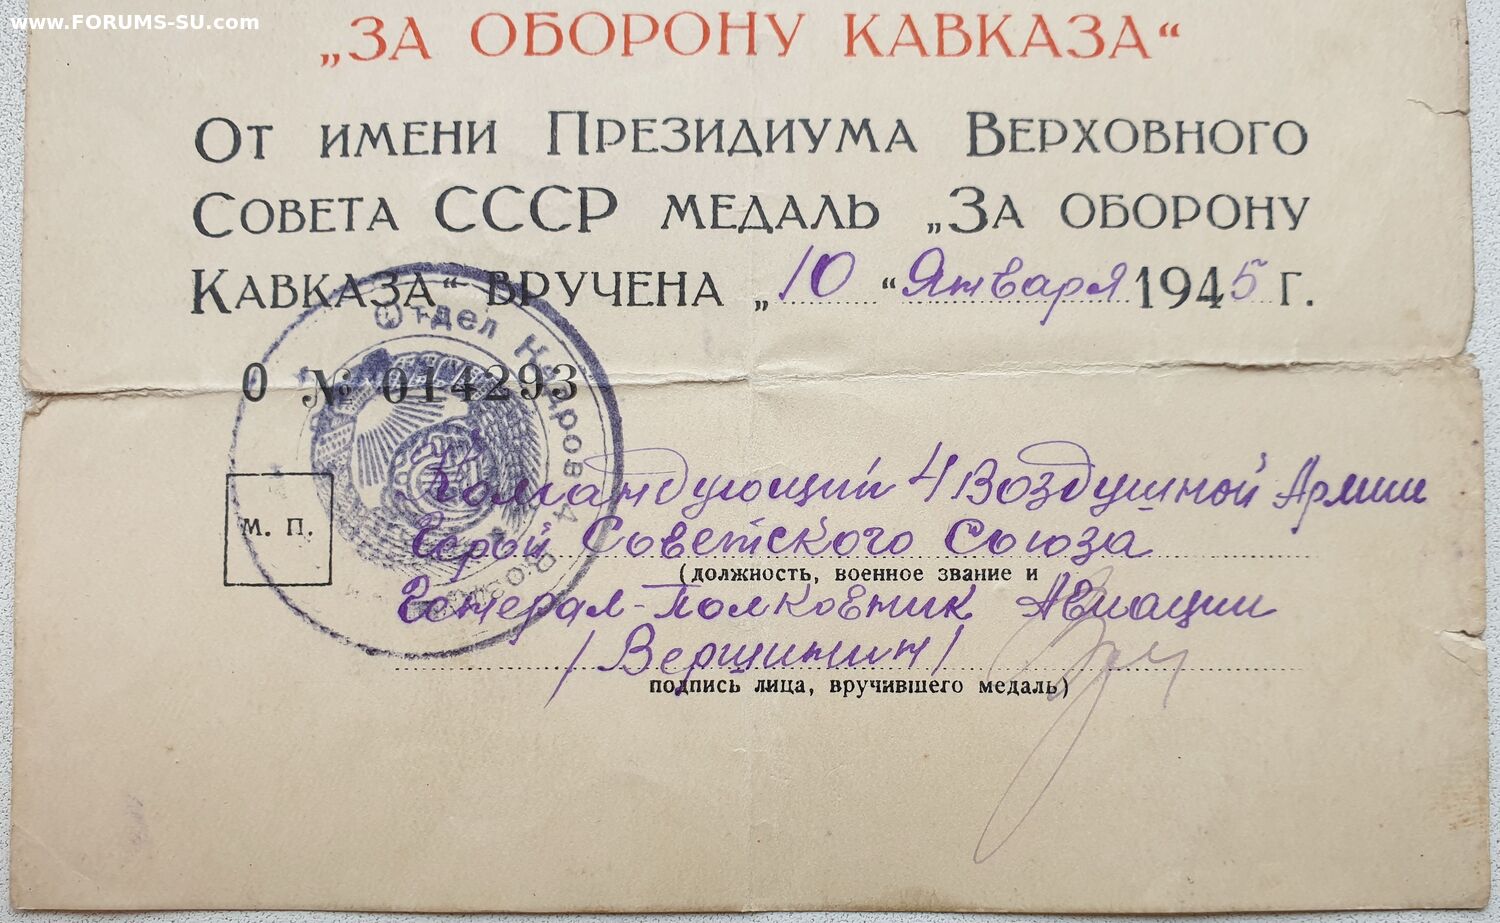 www.FORUMS-SU.com
„ЗА ОБОРОНУ КАВКАЗА“
От имени Президиума Верховного
Совета СССР медаль „За оборону
Кавказа“ вручена „10“ Января 1945 г.
Отдел Кадров 4 Возд
О № 014293
Командующий 4 Воздушной Армии
м. п.
Герой Советского Союза
(должность, военное звание и
Генерал-Полковник Авиации
/Вершинин/
подпись лица, вручившего медаль)